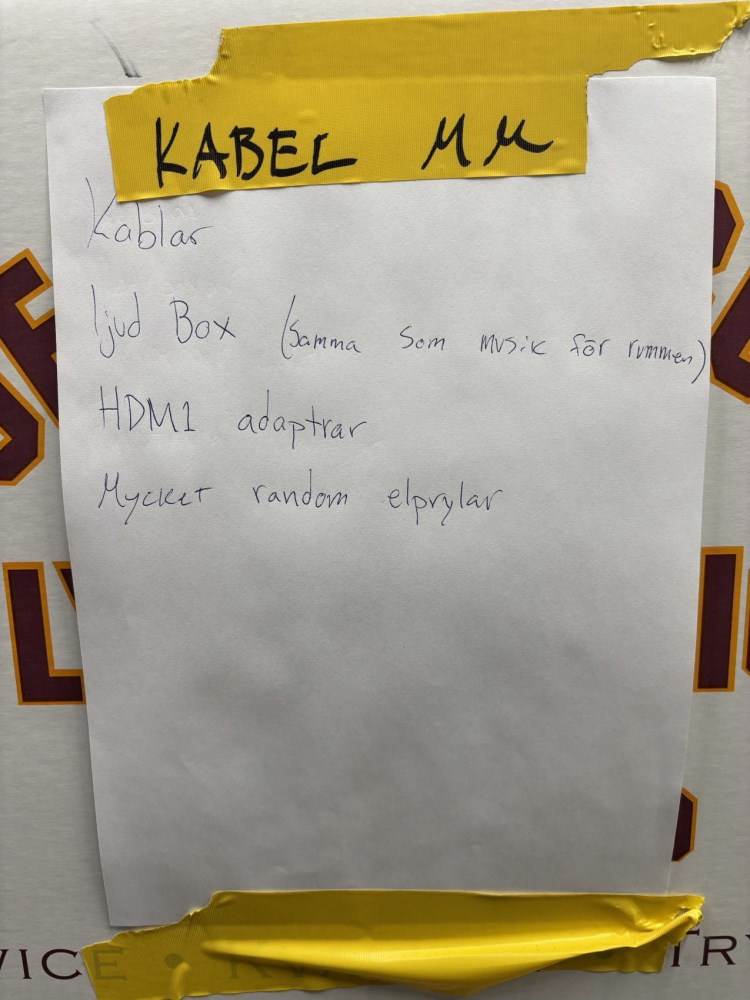 KABEL MM
Kablar
ljud Box (samma som musik för rummen)
HDMI adaptrar
Mycket random elprylar